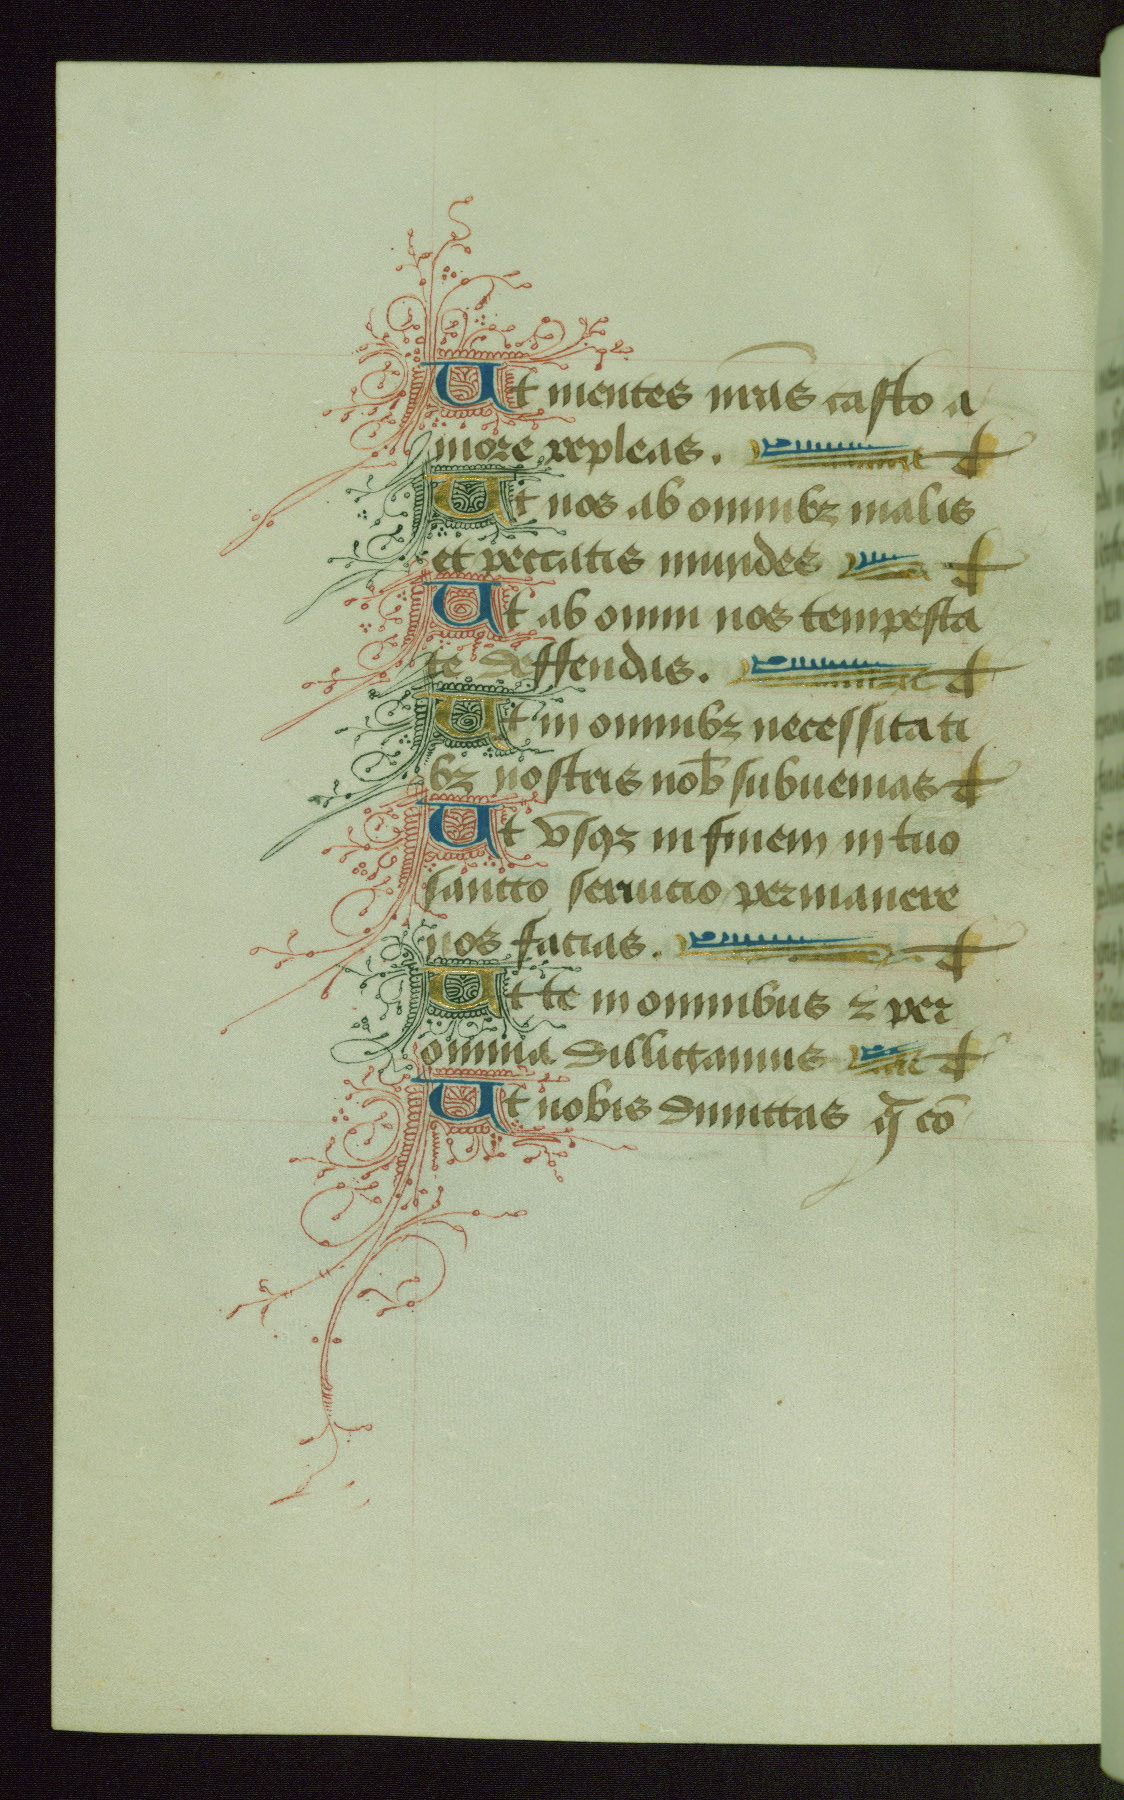 Ut mentes nr̄as casto a
more repleas. t
Ut nos ab omnibꝫ malis
et peccatis mundes t
Ut ab omni nos tempesta
te deffendas. t
Ut in omnibꝫ necessitati
bꝫ nostris nob̄ subuenias t
Ut v̄sqꝫ in finem in tuo
sancto seruicio permanere
nos facias. t
Ut te in omnibus ⁊ per
omnia dilligamus t
Ut nobis dimittas q̄ cō